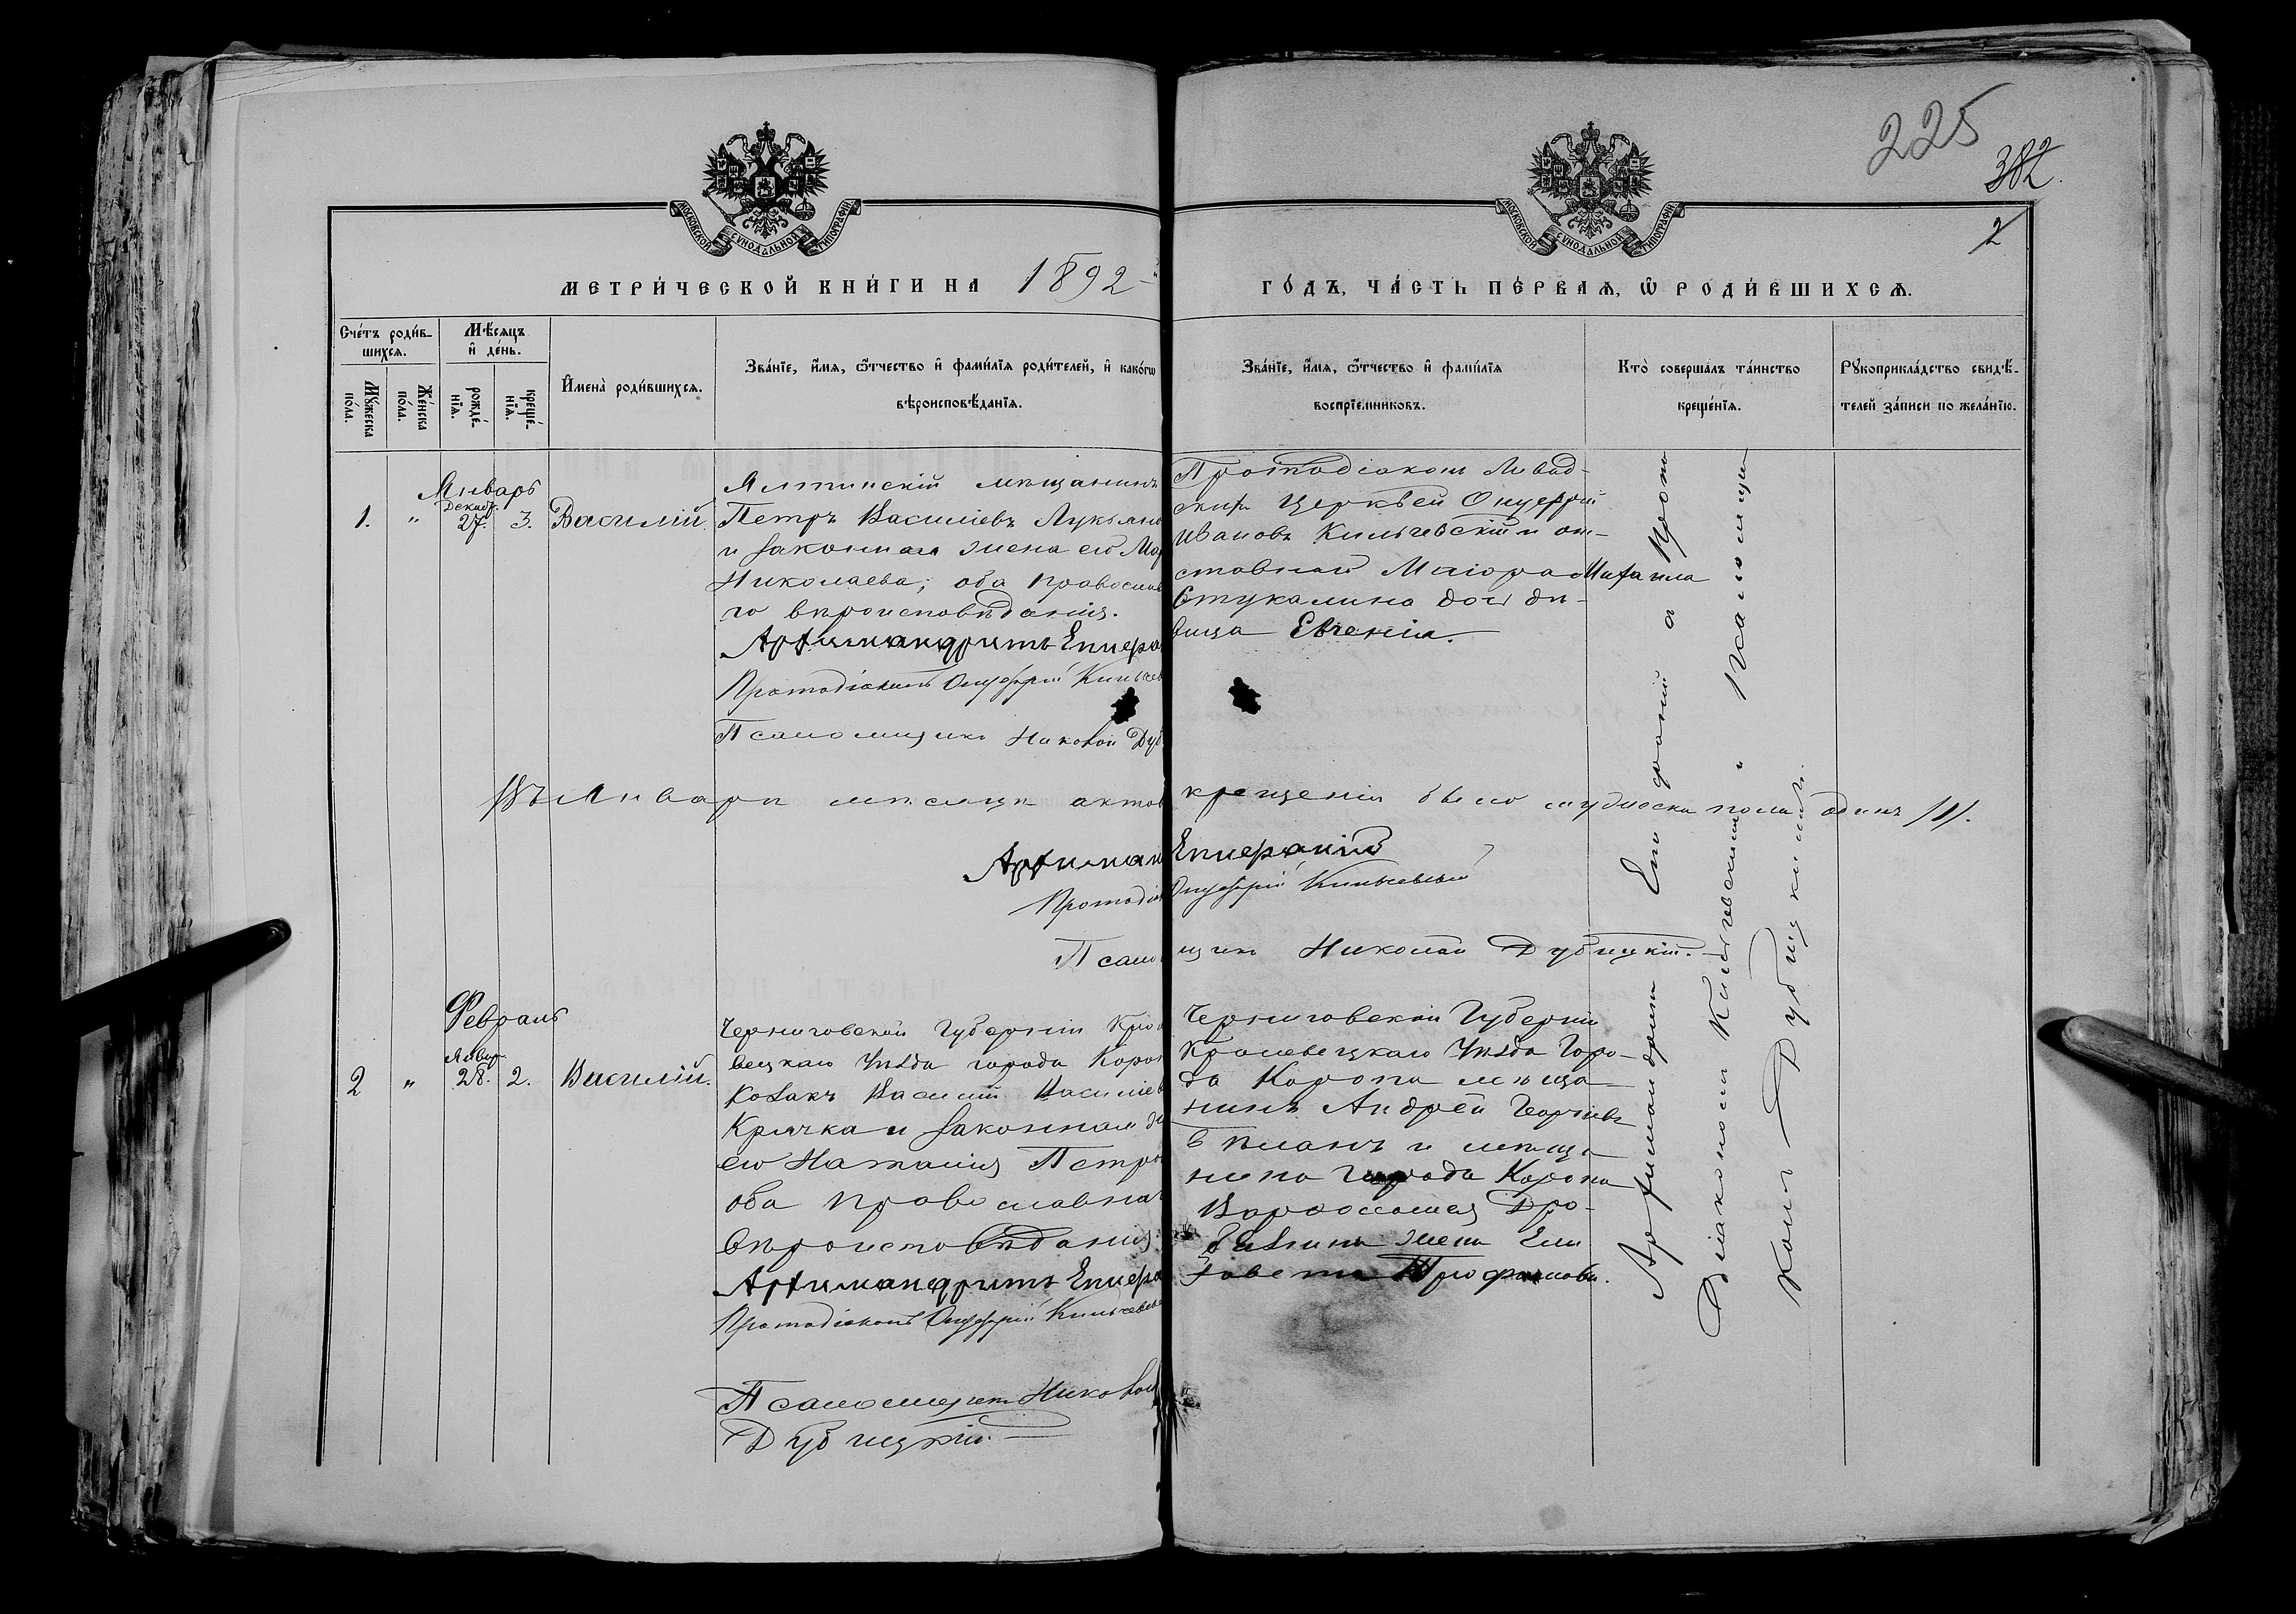 225
382
2
МОСКОВСКОЙ СУНОДАЛЬНОЙ ТИПОГРАФІИ
МОСКОВСКОЙ СУНОДАЛЬНОЙ ТИПОГРАФІИ
МЕТРИ́ЧЕСКОЙ КНИ́ГИ НА 1892
ГО́ДЪ, ЧА́СТЬ ПЕ́РВАѦ, Ѿ РОДИ́ВШИХСѦ.
Сче́тъ роди́вшихсѧ.
Мꙋ́жеска по́ла.
Же́нска по́ла.
Мѣ́сяцъ и де́нь.
рожде́нїѧ.
креще́нїѧ.
Имена̀ роди́вшихсѧ.
Зва́нїе, и́мѧ, ѻ́тчество и фами́лїѧ роди́телей, и како́гѡ
вѣроисповѣ́данїѧ.
Зва́нїе, и́мѧ, ѻ́тчество и фами́лїѧ
воспрїе́мниковъ.
Кто̀ соверша́лъ та́инство
креще́нїѧ.
Рꙋкоприкла́дство свидѣ́-
телей за́писи по жела́нїю.
Январь
Декабр.
1. " 27. 3. Василій.
Ялтинскій мѣщанинъ
Петръ Василіевъ Лукьяно
и законная жена его Мар
Николаева; оба православ
го вѣроисповѣданія.
Архимандритъ Епифа
Протодіаконъ Онуфрій Кильчев
Псаломщикъ Николай Дуб
Протодіаконъ Ливад-
скихъ Церквей Онуфрій
Ивановъ Кильчевскій и от-
ставной Маіора Михаила
Стукалина дочь дѣ-
вица Евгенія.
Въ Январѣ мѣсяцѣ актов
крещенія было мужеска пола одинъ /1/.
Архиман
Епифаній
Протодіа
Онуфрій Кильчевскій
Псалом
щикъ Николай Дубицкій.
Февраль
Январ.
2 " 28. 2. Василій.
Черниговской Губерніи Крол
вецкаго Уѣзда города Короп
Козакъ Василій Василіев
Крячка и законная же
его Наталія Петро
оба православнаг
вѣроисповѣданія
Архимандритъ Епифа
Протодіаконъ Онуфрій Кильчевск
Псаломщикъ Николай
Дубицкій.
Черниговской Губерніи
Кролевецкаго Уѣзда Горо-
да Коропа мѣща-
нинъ Андрей Георгіевъ
и мѣща-
нина Города Коропа
жена Ели
завета Трофимова.
Архимандритъ Епифаній и Прото
діаконъ Кильчевскій " Псаломщи
комъ Дубицкимъ.